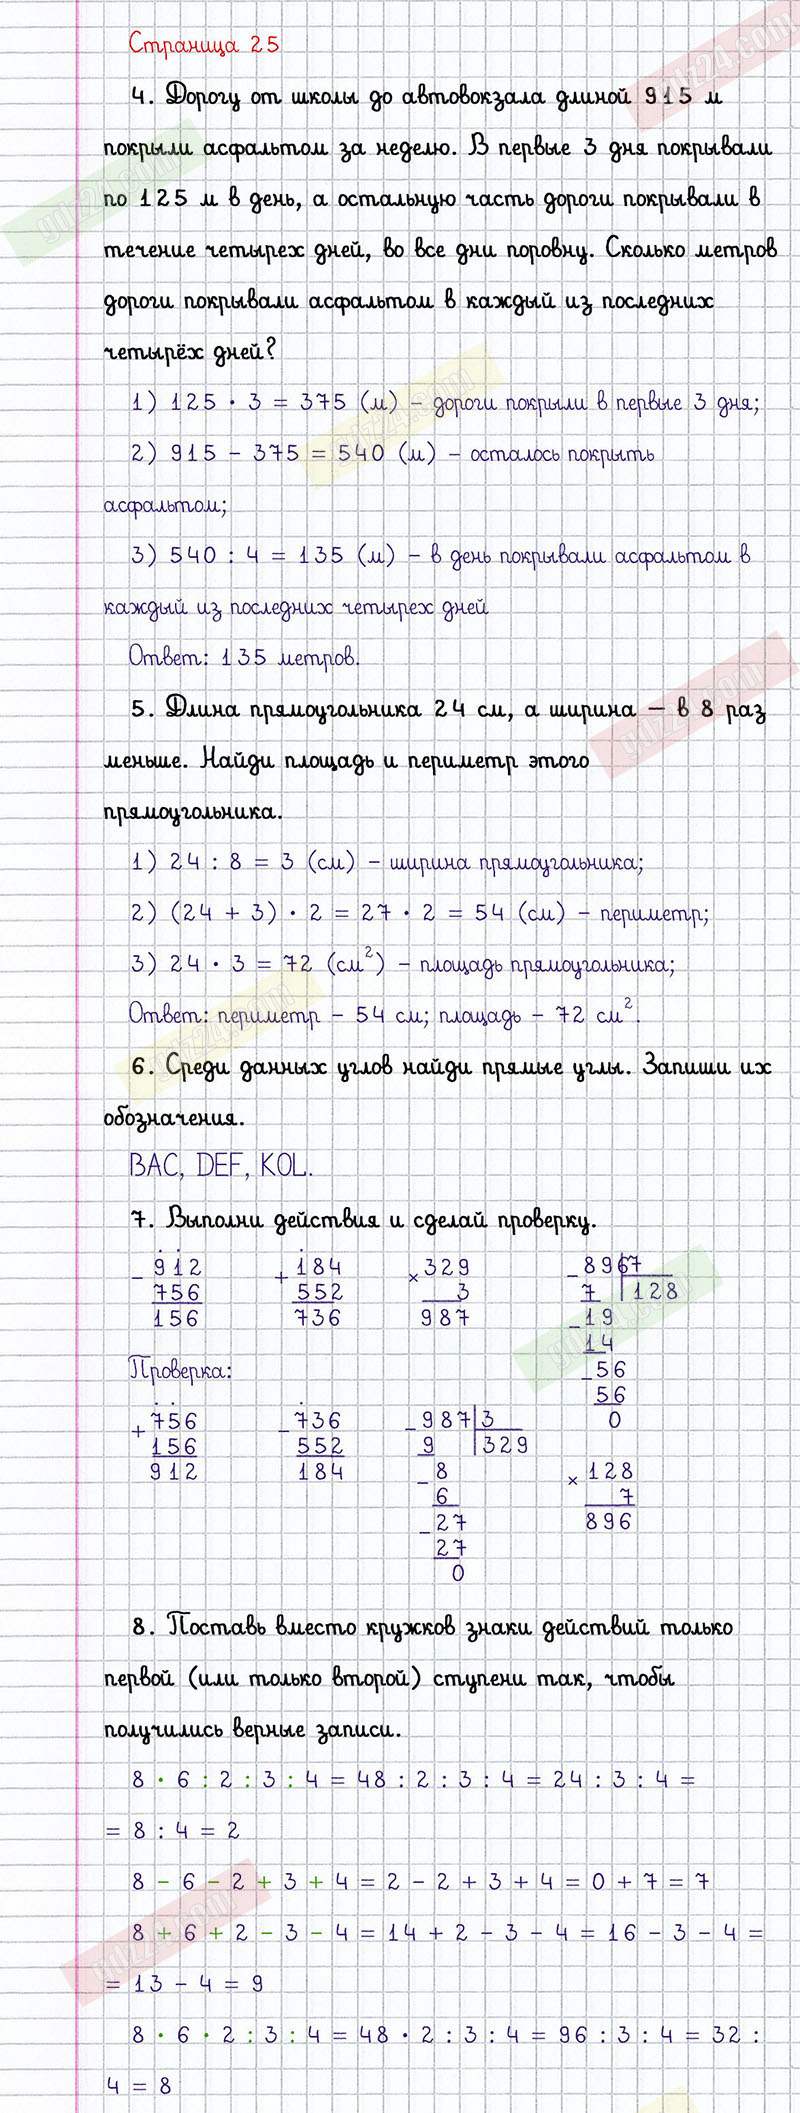 Страница 25
4. Дорогу от школы до автовокзала длиной 915 м
покрыли асфальтом за неделю. В первые 3 дня покрывали
по 125 м в день, а остальную часть дороги покрывали в
течение четырех дней, во все дни поровну. Сколько метров
дороги покрывали асфальтом в каждый из последних
четырёх дней?
1) 125 · 3 = 375 (м) – дороги покрыли в первые 3 дня;
2) 915 – 375 = 540 (м) – осталось покрыть
асфальтом;
3) 540 : 4 = 135 (м) – в день покрывали асфальтом в
каждый из последних четырех дней
Ответ: 135 метров.
5. Длина прямоугольника 24 см, а ширина – в 8 раз
меньше. Найди площадь и периметр этого
прямоугольника.
1) 24 : 8 = 3 (см) – ширина прямоугольника;
2) (24 + 3) · 2 = 27 · 2 = 54 (см) – периметр;
3) 24 · 3 = 72 (см²) – площадь прямоугольника;
Ответ: периметр – 54 см; площадь – 72 см².
6. Среди данных углов найди прямые углы. Запиши их
обозначения.
BAC, DEF, KOL.
7. Выполни действия и сделай проверку.
– 912 + 184 × 329 – 896 7
756 552 3 7 128
156 736 987 – 19
14
Проверка: – 56
56
+ 756 – 736 – 987 3 0
156 552 9 329
912 184 – 8 × 128
6 7
– 27 896
27
0
8. Поставь вместо кружков знаки действий только
первой (или только второй) ступени так, чтобы
получились верные записи.
8 · 6 : 2 : 3 : 4 = 48 : 2 : 3 : 4 = 24 : 3 : 4 =
= 8 : 4 = 2
8 – 6 – 2 + 3 + 4 = 2 – 2 + 3 + 4 = 0 + 7 = 7
8 + 6 + 2 – 3 – 4 = 14 + 2 – 3 – 4 = 16 – 3 – 4 =
= 13 – 4 = 9
8 · 6 · 2 : 3 : 4 = 48 · 2 : 3 : 4 = 96 : 3 : 4 = 32 :
4 = 8
gdz24.com
gdz24.com
gdz24.com
gdz24.com
gdz24.com
gdz24.com
gdz24.com